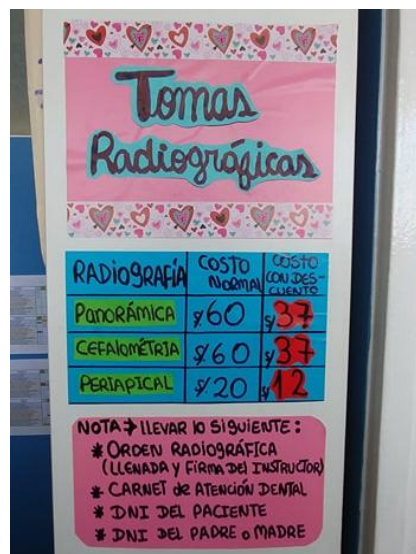 Tomas
Radiográficas
RADIOGRAFÍA COSTO NORMAL COSTO CON DES-CUENTO
PANORÁMICA $60 $37
CEFALOMÉTRIA $60 $37
PERIAPICAL $20 $12
NOTA → LLEVAR lO SIGUIENTE:
* ORDEN RADIOGRÁFICA
(LLENADA y FIRMA DEl INSTRUCTOR)
* CARNET de ATENCIÓN DENTAL
* DNI DEL PACIENTE
* DNI DEL PADRE o MADRE